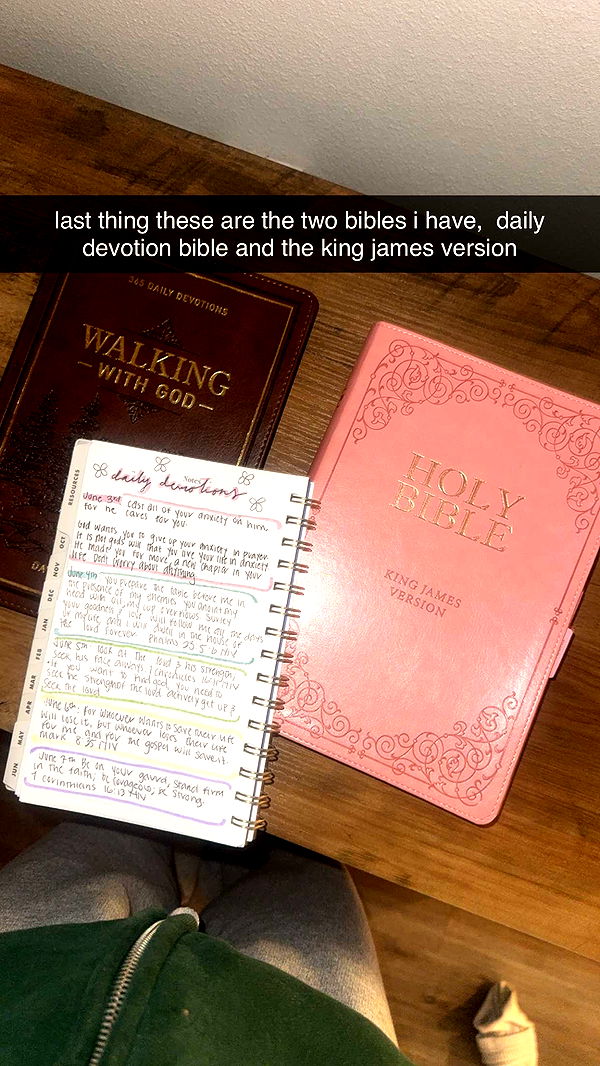 last thing these are the two bibles i have, daily
devotion bible and the king james version
365 DAILY DEVOTIONS
WALKING
WITH GOD
HOLY
BIBLE
KING JAMES
VERSION
RESOURCES
OCT
NOV
DEC
JAN
FEB
MAR
APR
MAY
JUN
Notes
daily devotions
June 3rd cast all of your anxiety on him
for he cares for you.
God wants you to give up your anxiety in prayer.
It is not gods will that you live your life in anxiety
He made you for more, a new chapter in your
life. Dont worry about anything.
June 4th you prepare the table before me in
the presence of my enemies. You anoint my
head with oil my cup overflows. Surley
your goodness & love will follow me all the days
of my life, and i will dwell in the house of
the lord forever. Psalms 23:5-6 NIV
June 5th look at the lord & his strength,
Seek his face always 1 chronicles 16:11 NIV
if you want to find god, you need to
seek the strength of the lord actively get up &
Seek the lord.
June 6th: For whoever wants to save their life
will lose it, but whoever loses their life
for me and for the gospel will save it.
mark 8:35 NIV
June 7th Be on your gaurd, stand firm
in the faith; be courageous; be strong.
1 corinthians 16:13 NIV